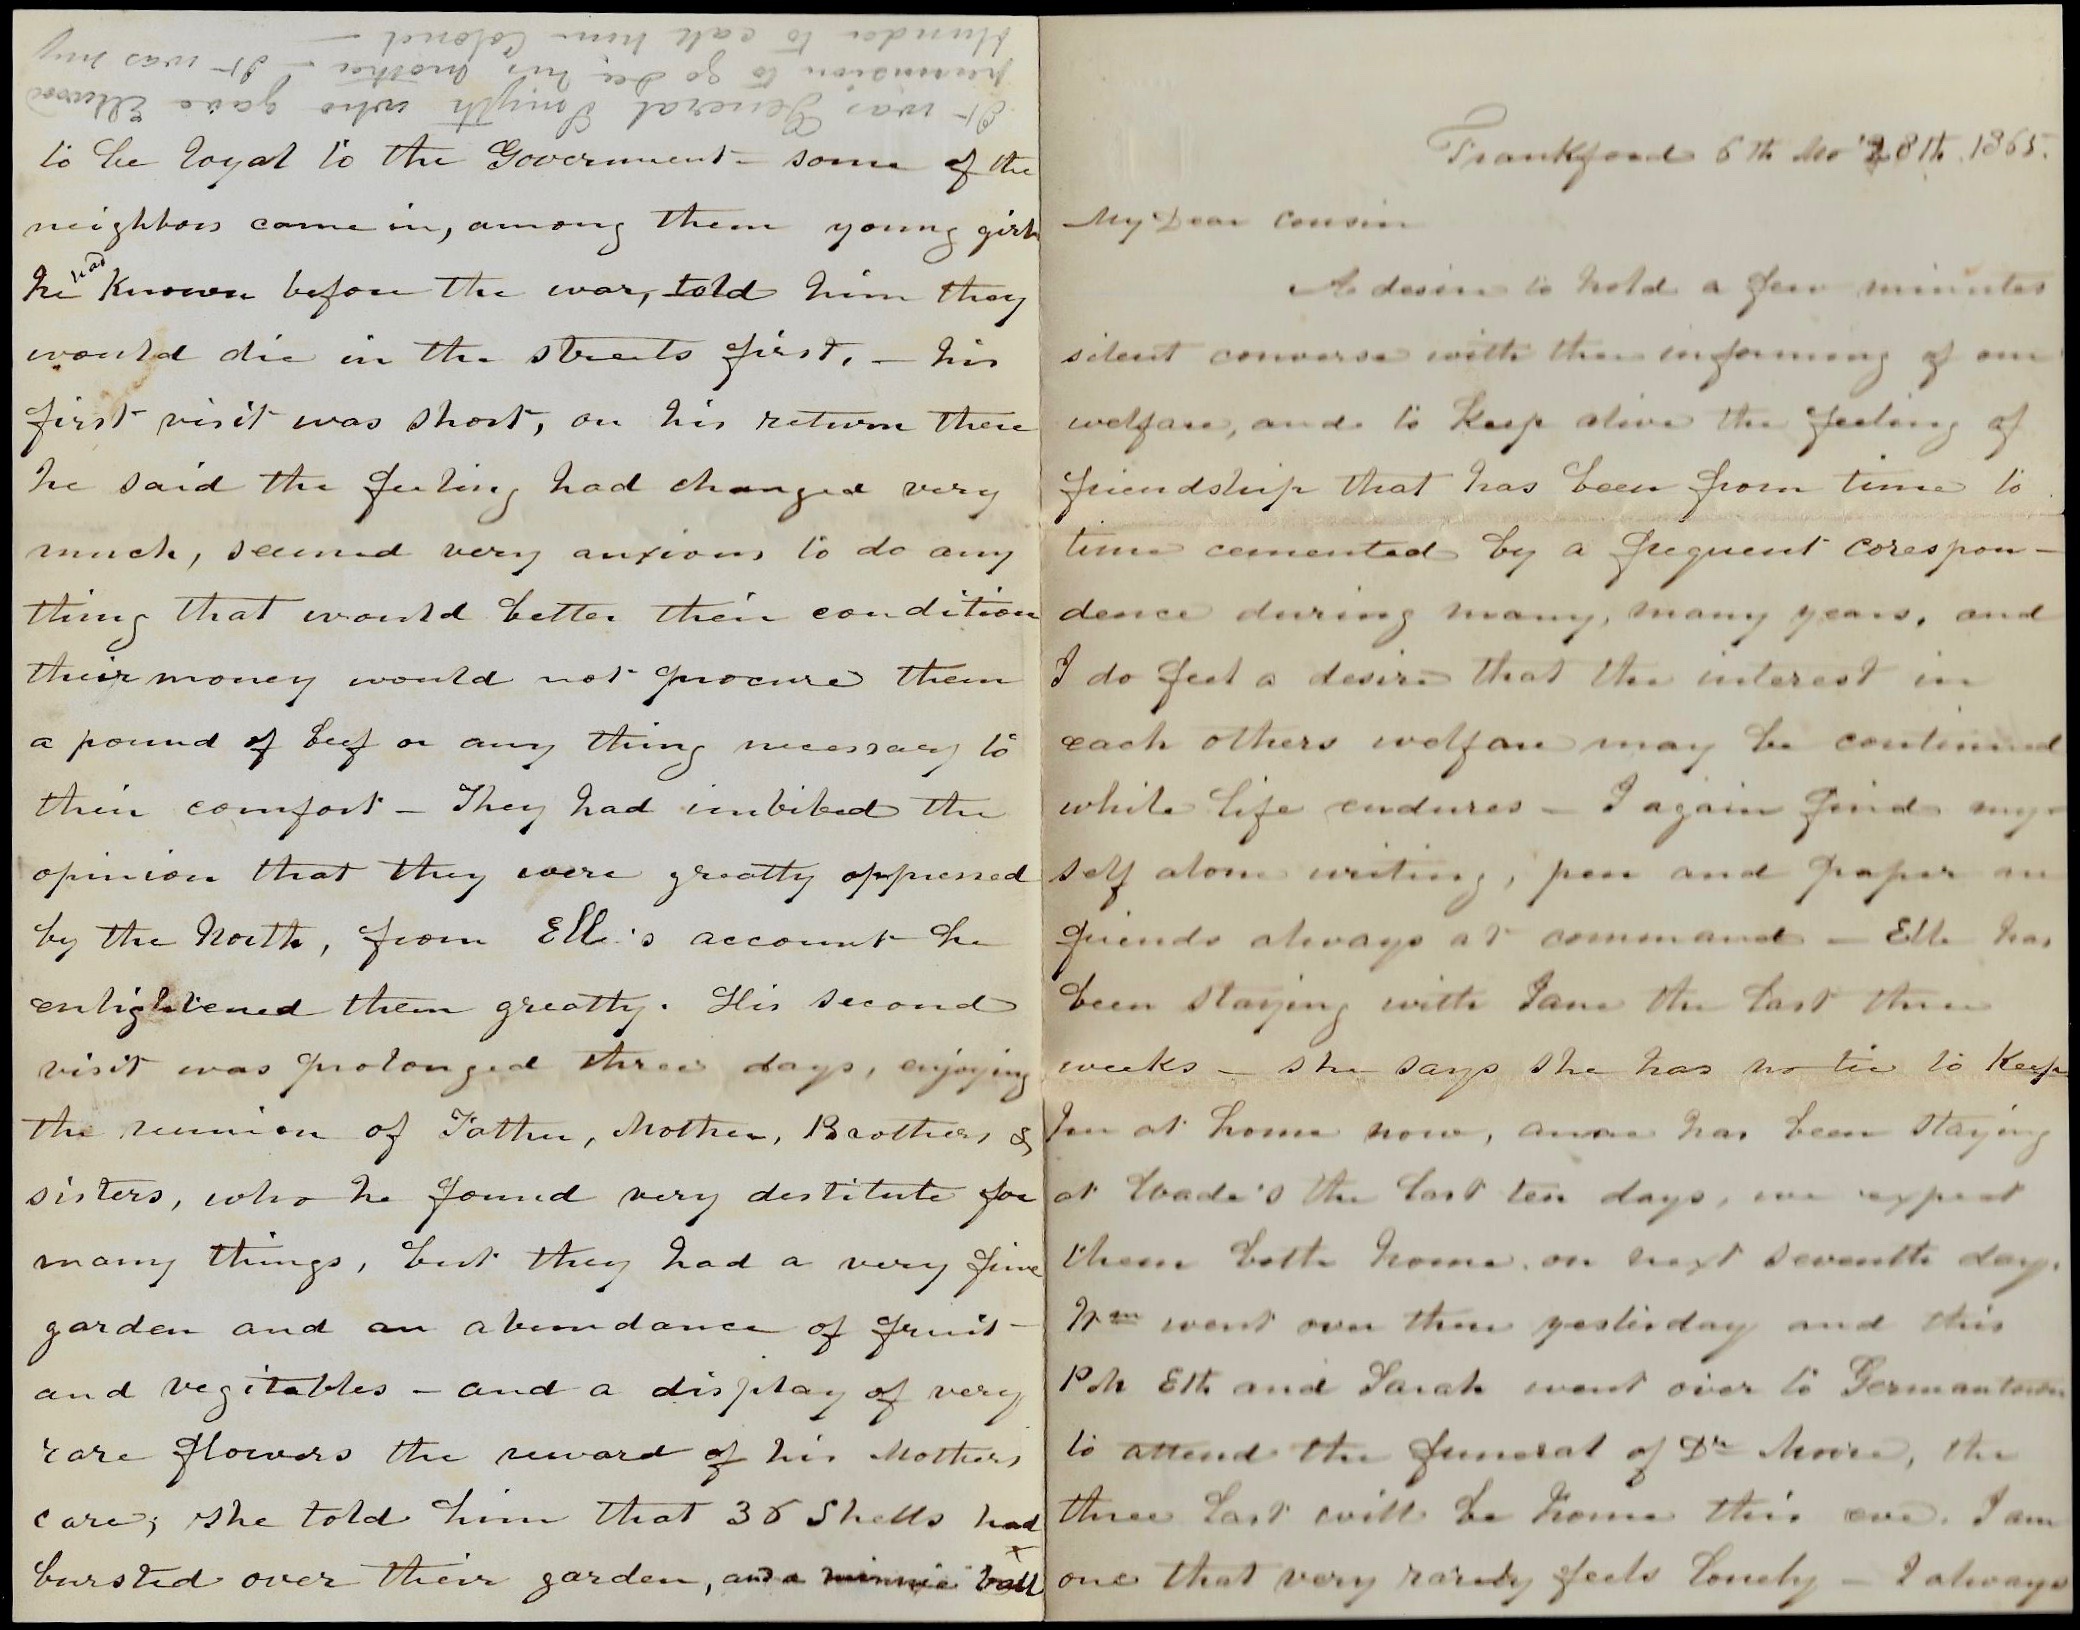 It was General Smyth who gave Ellwood
permission to go see his Mother - It was my
blunder to call him Colonel -
to be loyal to the Government - some of the
neighbors came in, among them young girls
he had known before the war, told him they
would die in the streets first, - his
first visit was short, on his return there
he said the feeling had changed very
much, seemed very anxious to do any
thing that would better their condition
their money would not procure them
a pound of beef or any thing necessary to
their comfort - They had imbibed the
opinion that they were greatly oppressed
by the North, from Ell's account he
enlightened them greatly. His second
visit was prolonged three days, enjoying
the reunion of Father, Mother, Brothers, &
sisters, who he found very destitute for
many things, but they had a very fine
garden and an abundance of fruit
and vegitables - and a display of very
rare flowers the reward of his Mothers
care; she told him that 36 Shells had
bursted over their garden, and a minnie ball
Frankford 6th Mo 28th. 1865.
My Dear Cousin
A desire to hold a few minutes
silent converse with thee informing of our
welfare, and to keep alive the feeling of
friendship that has been from time to
time cemented by a frequent corespon-
dence during many, many years, and
I do feel a desire that the interest in
each others welfare may be continued
while life endures - I again find my-
self alone writing, pen and paper are
friends always at command - Elle has
been staying with Jane the last three
weeks - she says she has no tie to keep
her at home now, anna has been staying
at Wade's the last ten days, we expect
them both home on next seventh day.
Wm went over there yesterday and this
P.M Eth and Sarah went over to Germantown
to attend the funeral of Dr Moore, the
three last will be home this eve. I am
one that very rarely feels lonely - I always